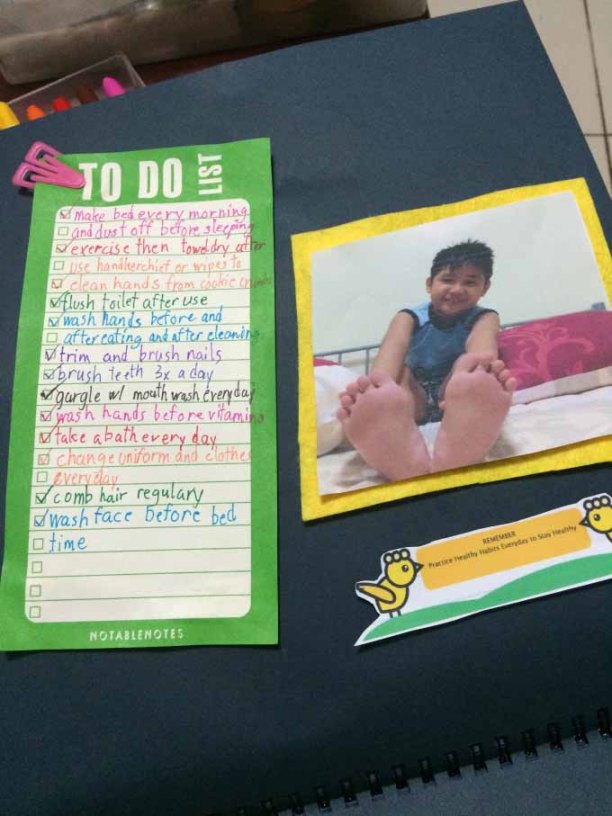 TO DO LIST
make bed every morning
and dust off before sleeping
exercise then towel dry after
use handkerchief or wipes to
clean hands from cookie crumbs
flush toilet after use
wash hands before and
after eating and after cleaning
trim and brush nails
brush teeth 3x a day
gargle w/ mouth wash everyday
wash hands before vitamins
take a bath every day
change uniform and clothes
everyday
comb hair regulary
wash face before bed
time
NOTABLENOTES
REMEMBER
Practice Healthy Habits Everyday to Stay Healthy